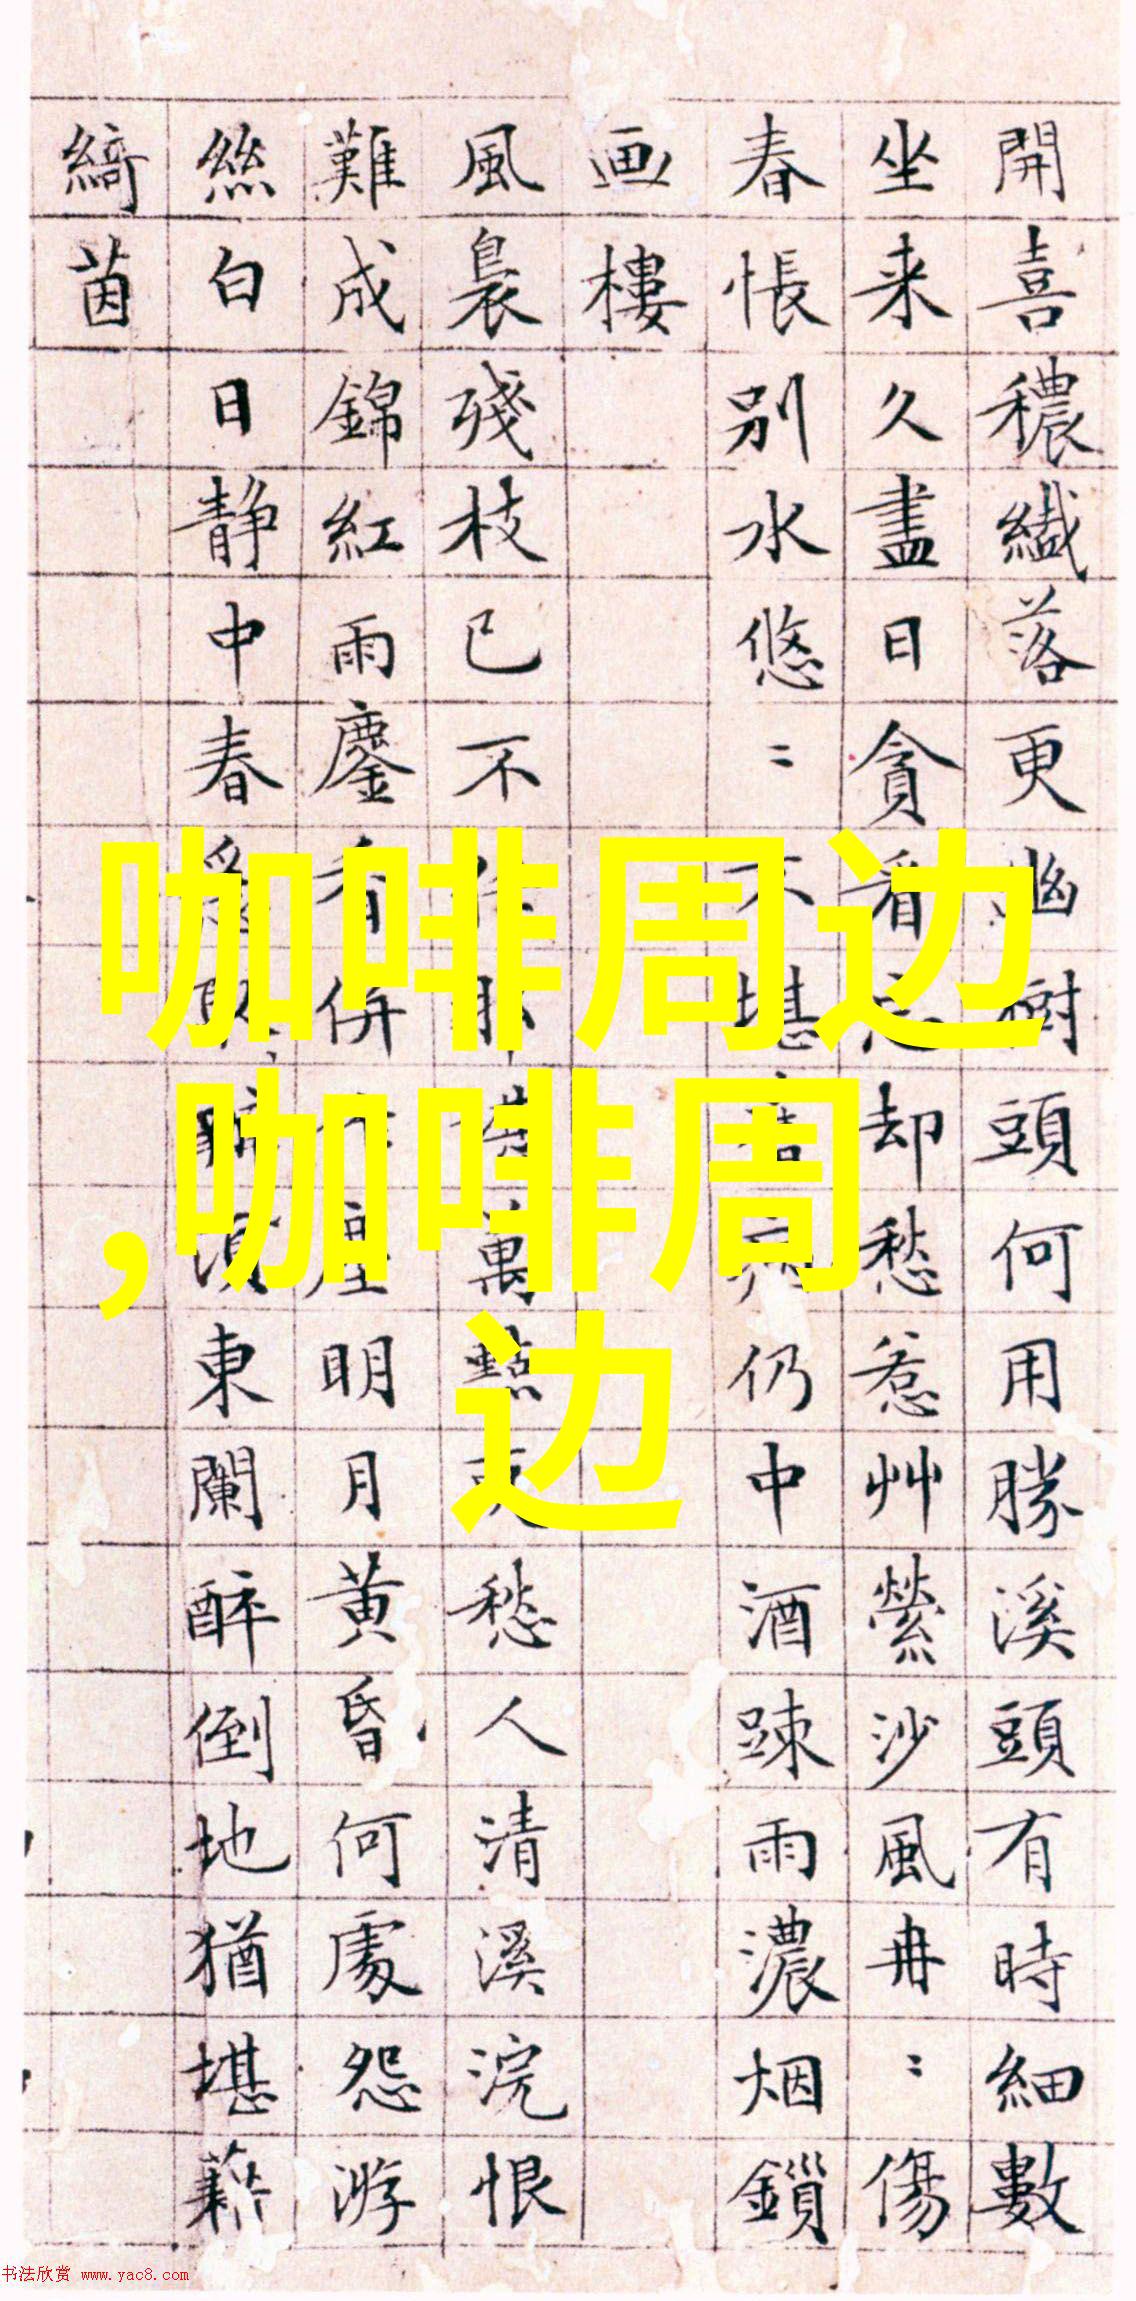 開喜穠纎落更幽樹頭何用勝溪頭有時細數
坐来久盡日貪看忘却愁惹艸縈沙風冉〻傷
春悵别水悠〻不堪仍中酒踈雨濃烟鎖
画樓
風裊殘枝已不萬點愁人清溪浣恨
難成錦紅雨鏖看併塵明月黄昏何處怨游
絲白日静中春須東闌醉倒地猶堪藉
綺茵
咖啡周边
,咖啡周
边
书法欣赏 www.yac8.com